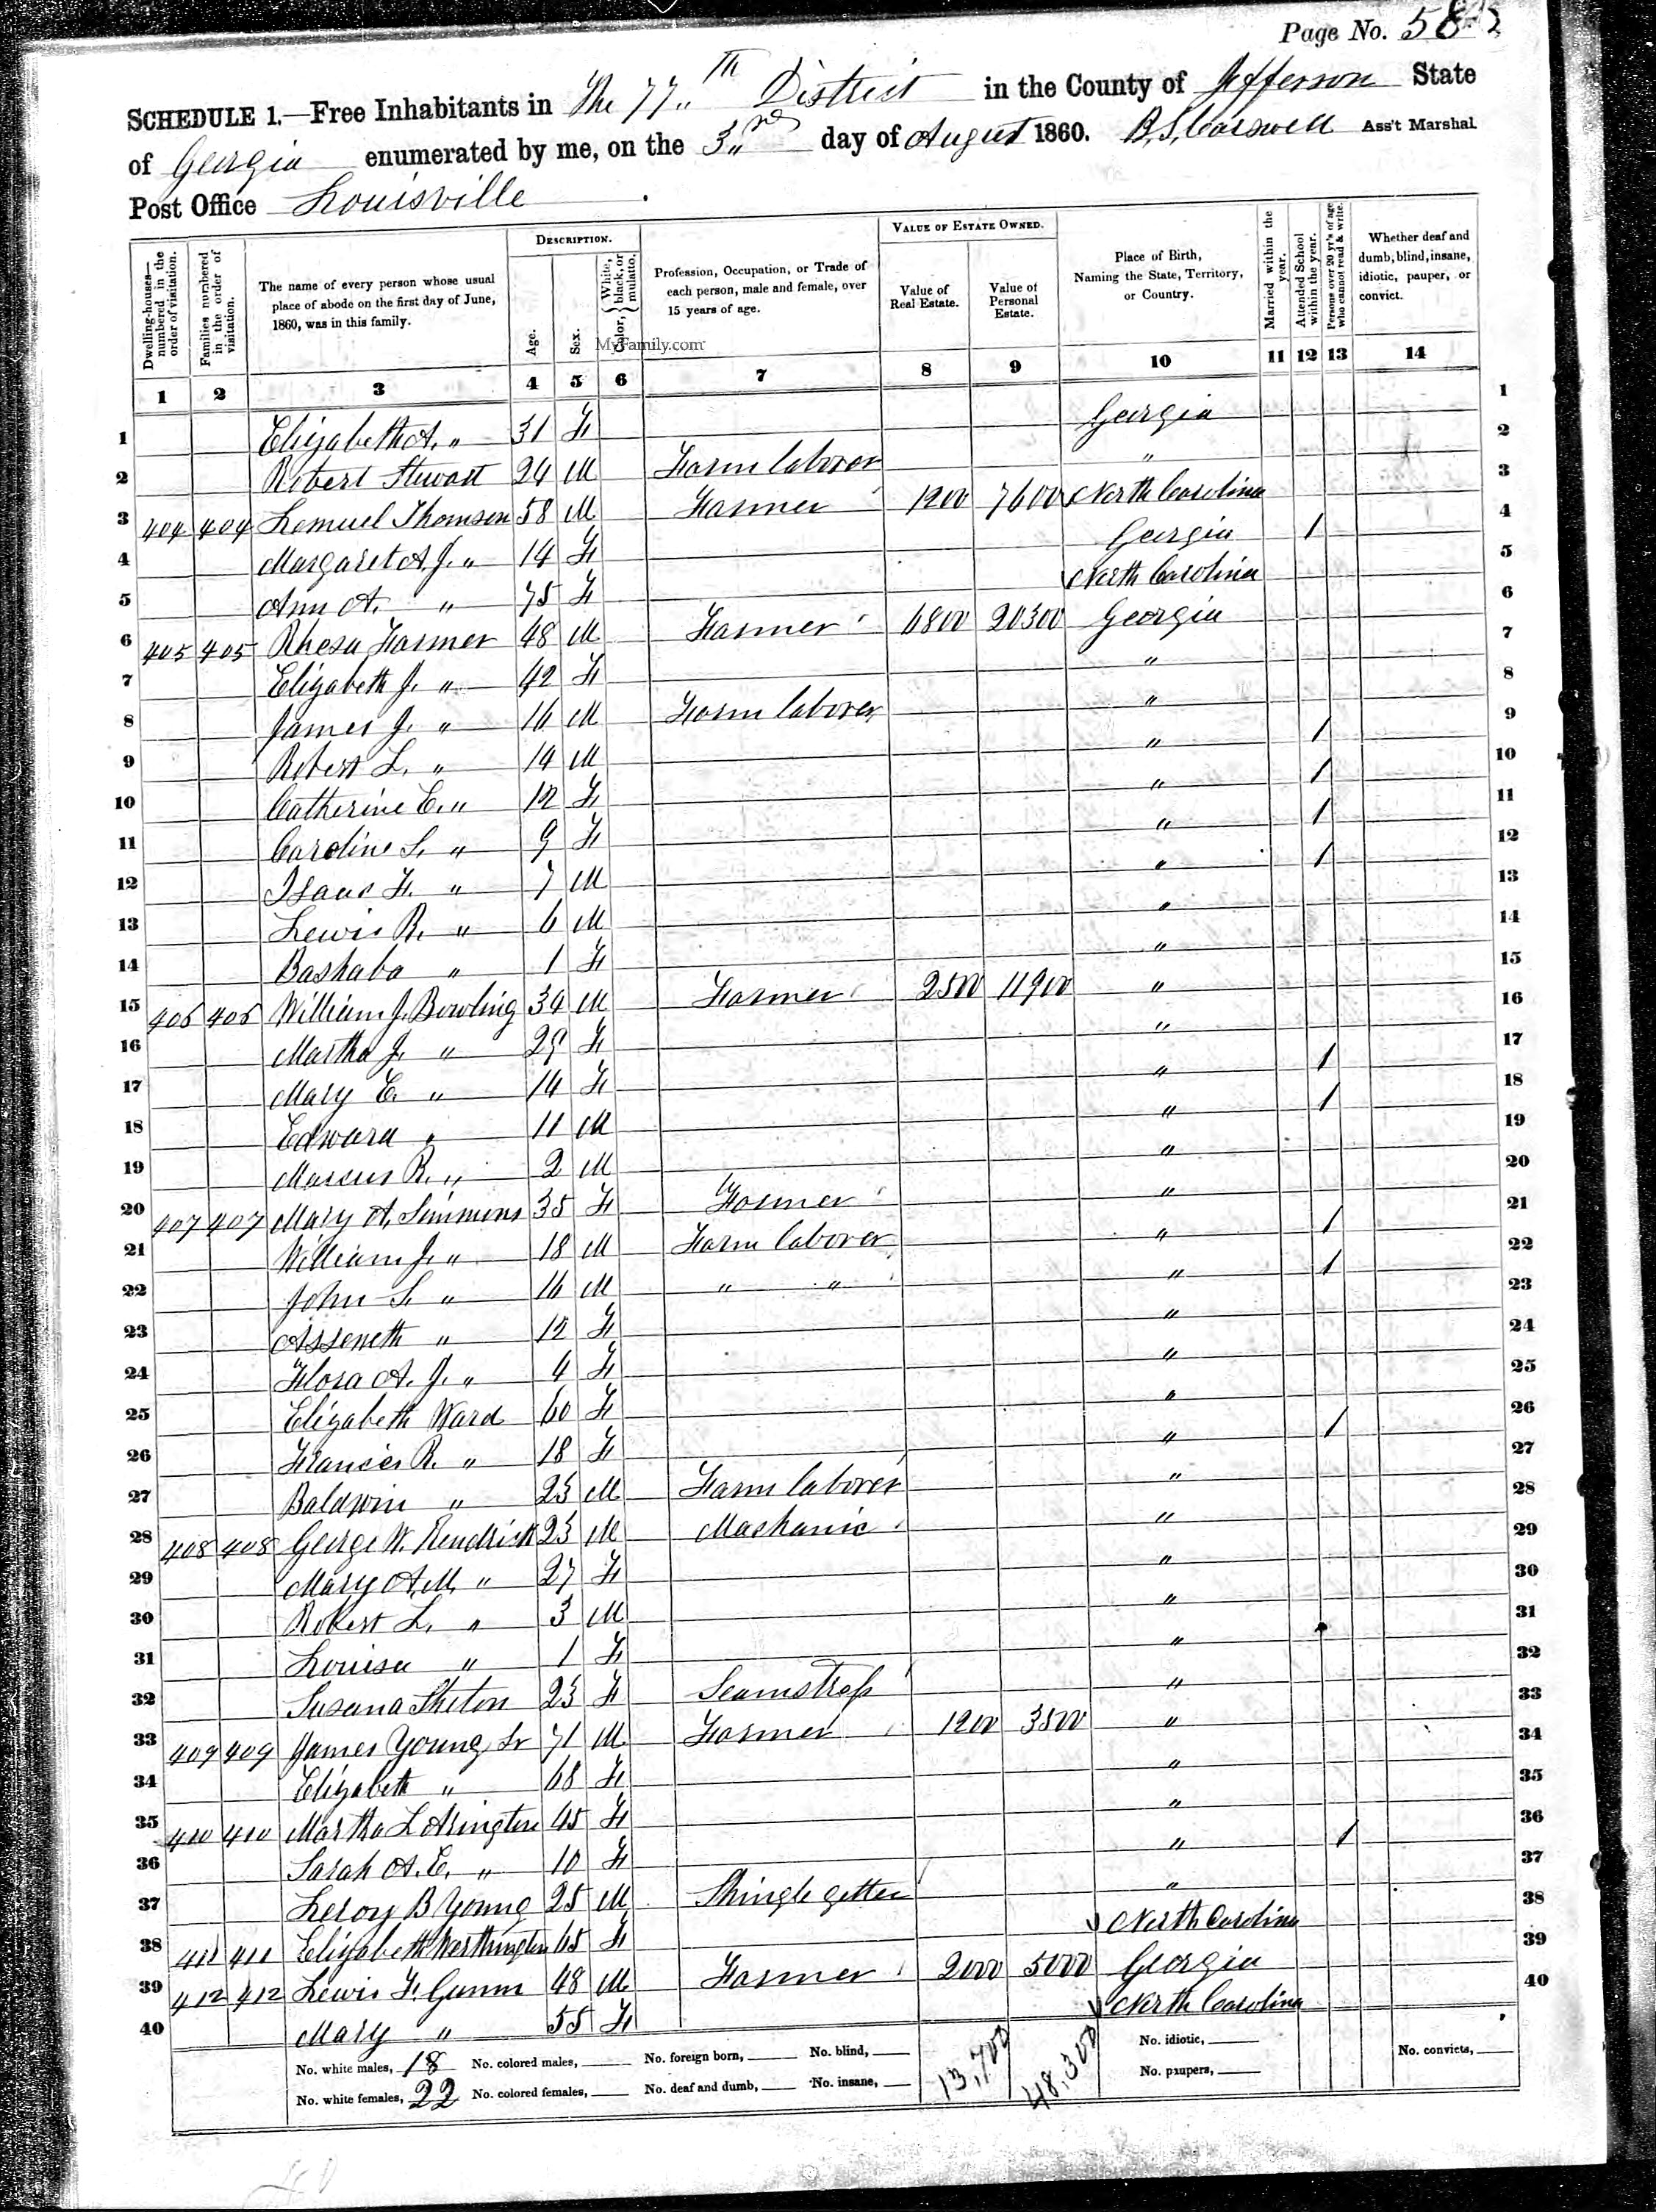 Page No. 58
SCHEDULE 1.—Free Inhabitants in The 77th District in the County of Jefferson State
of Georgia enumerated by me, on the 3rd day of August 1860. B. S. Carswell Ass't Marshal
Post Office Louisville
Dwelling-houses—numbered in the order of visitation.
Families numbered in the order of visitation.
The name of every person whose usual place of abode on the first day of June, 1860, was in this family.
DESCRIPTION.
Age.
Sex.
Color, { White, black, or mulatto.
Profession, Occupation, or Trade of each person, male and female, over 15 years of age.
VALUE OF ESTATE OWNED.
Value of Real Estate.
Value of Personal Estate.
Place of Birth, Naming the State, Territory, or Country.
Married within the year.
Attended School within the year.
Persons over 20 yr's of age who cannot read & write.
Whether deaf and dumb, blind, insane, idiotic, pauper, or convict.
MyFamily.com
1 2 3 4 5 6 7 8 9 10 11 12 13 14
1 Elizabeth A. " 31 F Georgia 1
2 Robert Stewart 24 M Farm laborer " 2
3 404 404 Lemuel Thomson 58 M Farmer 1200 7600 North Carolina 3
4 Margaret A. J. " 14 F Georgia / 4
5 Ann A. " 75 F North Carolina 5
6 405 405 Rhesa Farmer 48 M Farmer 6800 20300 Georgia 6
7 Elizabeth J. " 42 F " 7
8 James J. " 16 M Farm laborer " 8
9 Robert L. " 14 M " / 9
10 Catherine E. " 12 F " / 10
11 Caroline S. " 9 F " / 11
12 Isaac F. " 7 M " / 12
13 Lewis R. " 6 M " 13
14 Bashaba " 1 F " 14
15 406 406 William J. Bowling 34 M Farmer 2500 11900 " 15
16 Martha J. " 29 F " 16
17 Mary E. " 14 F " / 17
18 Edward " 11 M " / 18
19 Marcus R. " 2 M " 19
20 407 407 Mary A. Simmons 35 F Farmer " 20
21 William J. " 18 M Farm laborer " / 21
22 John S. " 16 M " " " / 22
23 Asseneth " 12 F " 23
24 Flora A. J. " 4 F " 24
25 Elizabeth Ward 60 F " 25
26 Frances R. " 18 F " / 26
27 Baldwin " 23 M Farm laborer " 27
28 408 408 George W. Kendrick 23 M Mashanic " 28
29 Mary A. M. " 27 F " 29
30 Robert L. " 3 M " 30
31 Louisa " 1 F " 31
32 Susana 23 F Seamstress " 32
33 409 409 James Young Sr 71 M Farmer 1200 3500 " 33
34 Elizabeth " 68 F " 34
35 410 410 Martha L Arington 45 F " 35
36 Sarah A. E. " 10 F " / 36
37 Leroy B Young 25 M Shingle getter " 37
38 411 411 Elizabeth Worthington 65 F North Carolina 38
39 412 412 Lewis F. Gunn 48 M Farmer 2000 5000 Georgia 39
40 Mary " 55 F North Carolina 40
No. white males, 18 No. colored males, No. foreign born, No. blind, 13,700 48,300 No. idiotic, No. convicts,
No. white females, 22 No. colored females, No. deaf and dumb, No. insane, No. paupers,